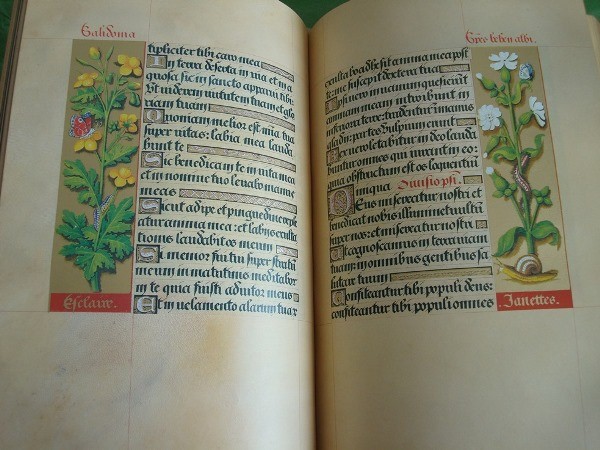 Calidonia
tipliciter tibi caro mea
In terra deserta in via et ina
quosa sic in sancto apparui tibi:
Ut viderem virtutem tuam et glo
riam tuam
Quoniam melior est mia tua
super vitas: labia mea lauda
bunt te
Sic benedicam te in vita mea
et in nomine tuo levabo manus
meas
Sicut adipe et pinguedine reple
atur anima mea: et labiis exulta
tionis laudabit os meum
Si memor fui tui super stratu
meum in matutinis meditabor
in te quia fuisti adiutor meus
Et in velamento alarum tuar
Esclaire.
exultabo adhesit anima mea post
te: me suscepit dextera tua
Ipsi vero in vanum quesierut
animam meam introibunt in
inferiora terre: tradentur in manus
gladii: partes vulpium erunt
Rex vero letabitur in deo lauda
buntur omnes qui iurant in eo
quia obstructum est os loquentiu
iniqua
Deus misereatur nostri et
benedicat nobis illuminet vultu
suum super nos: et misereatur nostri
Ut cognoscamus in terra viam
tuam: in omnibus gentibus sa
lutare tuum
Confiteantur tibi populi deus:
confiteantur tibi populi omnes
Janettes.